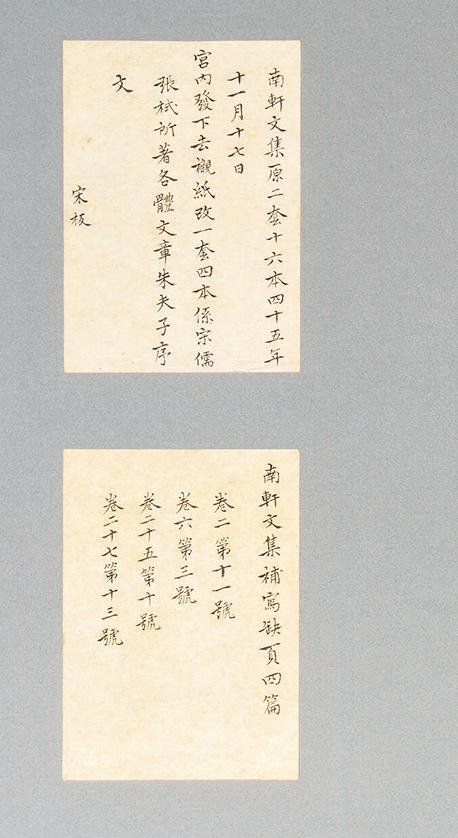 南軒文集原二套十六本四十五年
十一月十七日
宮內發下去襯紙改一套四本係宋儒
張栻所著各體文章朱夫子序
文
宋板
南軒文集補寫缺頁四篇
卷二第十一號
卷六第三號
卷二十五第十號
卷二十七第十三號